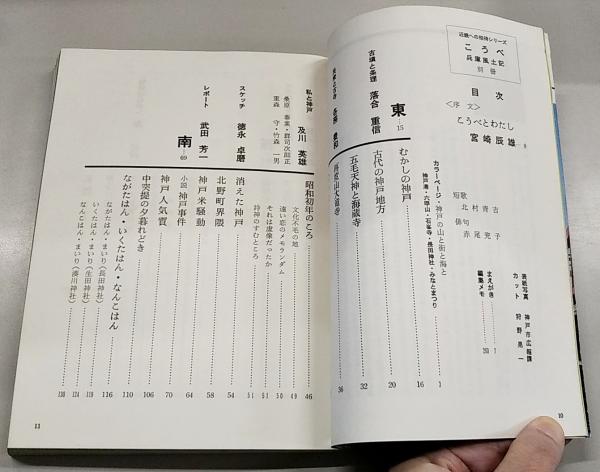 近畿への招待シリーズ
こうべ
兵庫風土記
別冊
目次
〈序文〉
こうべとわたし
宮崎辰雄 8
カラーページ・神戸の山と街と海と
神戸港・六甲山・石峯寺・長田神社・みなとまつり 1
短歌
北村青吉
俳句
赤尾兜子
まえがき 7
編集メモ 203
表紙写真 神戸市広報課
カット 狩野晃一
東 —15
むかしの神戸 16
古墳と条理 落合重信
古代の神戸地方 20
五毛天神と海蔵寺 32
再度山大龍寺 36
10
私と神戸 及川英雄
桑原泰業・群司次郎正
重森守・竹森一男
昭和初年のころ 46
文化不毛の地 49
遠い恋のメモランダム 50
それは虚像だったか 51
詩神のすむところ 51
スケッチ 徳永卓磨
消えた神戸 54
北野町界隈 58
レポート 武田芳一
神戸米騒動 64
南 —69
小説 神戸事件 70
神戸人気質 106
中突堤の夕暮れどき 110
ながたはん・いくたはん・なんこはん 116
ながたはん・まいり（長田神社） 119
いくたはん・まいり（生田神社） 124
なんこはん・まいり（湊川神社） 130
11